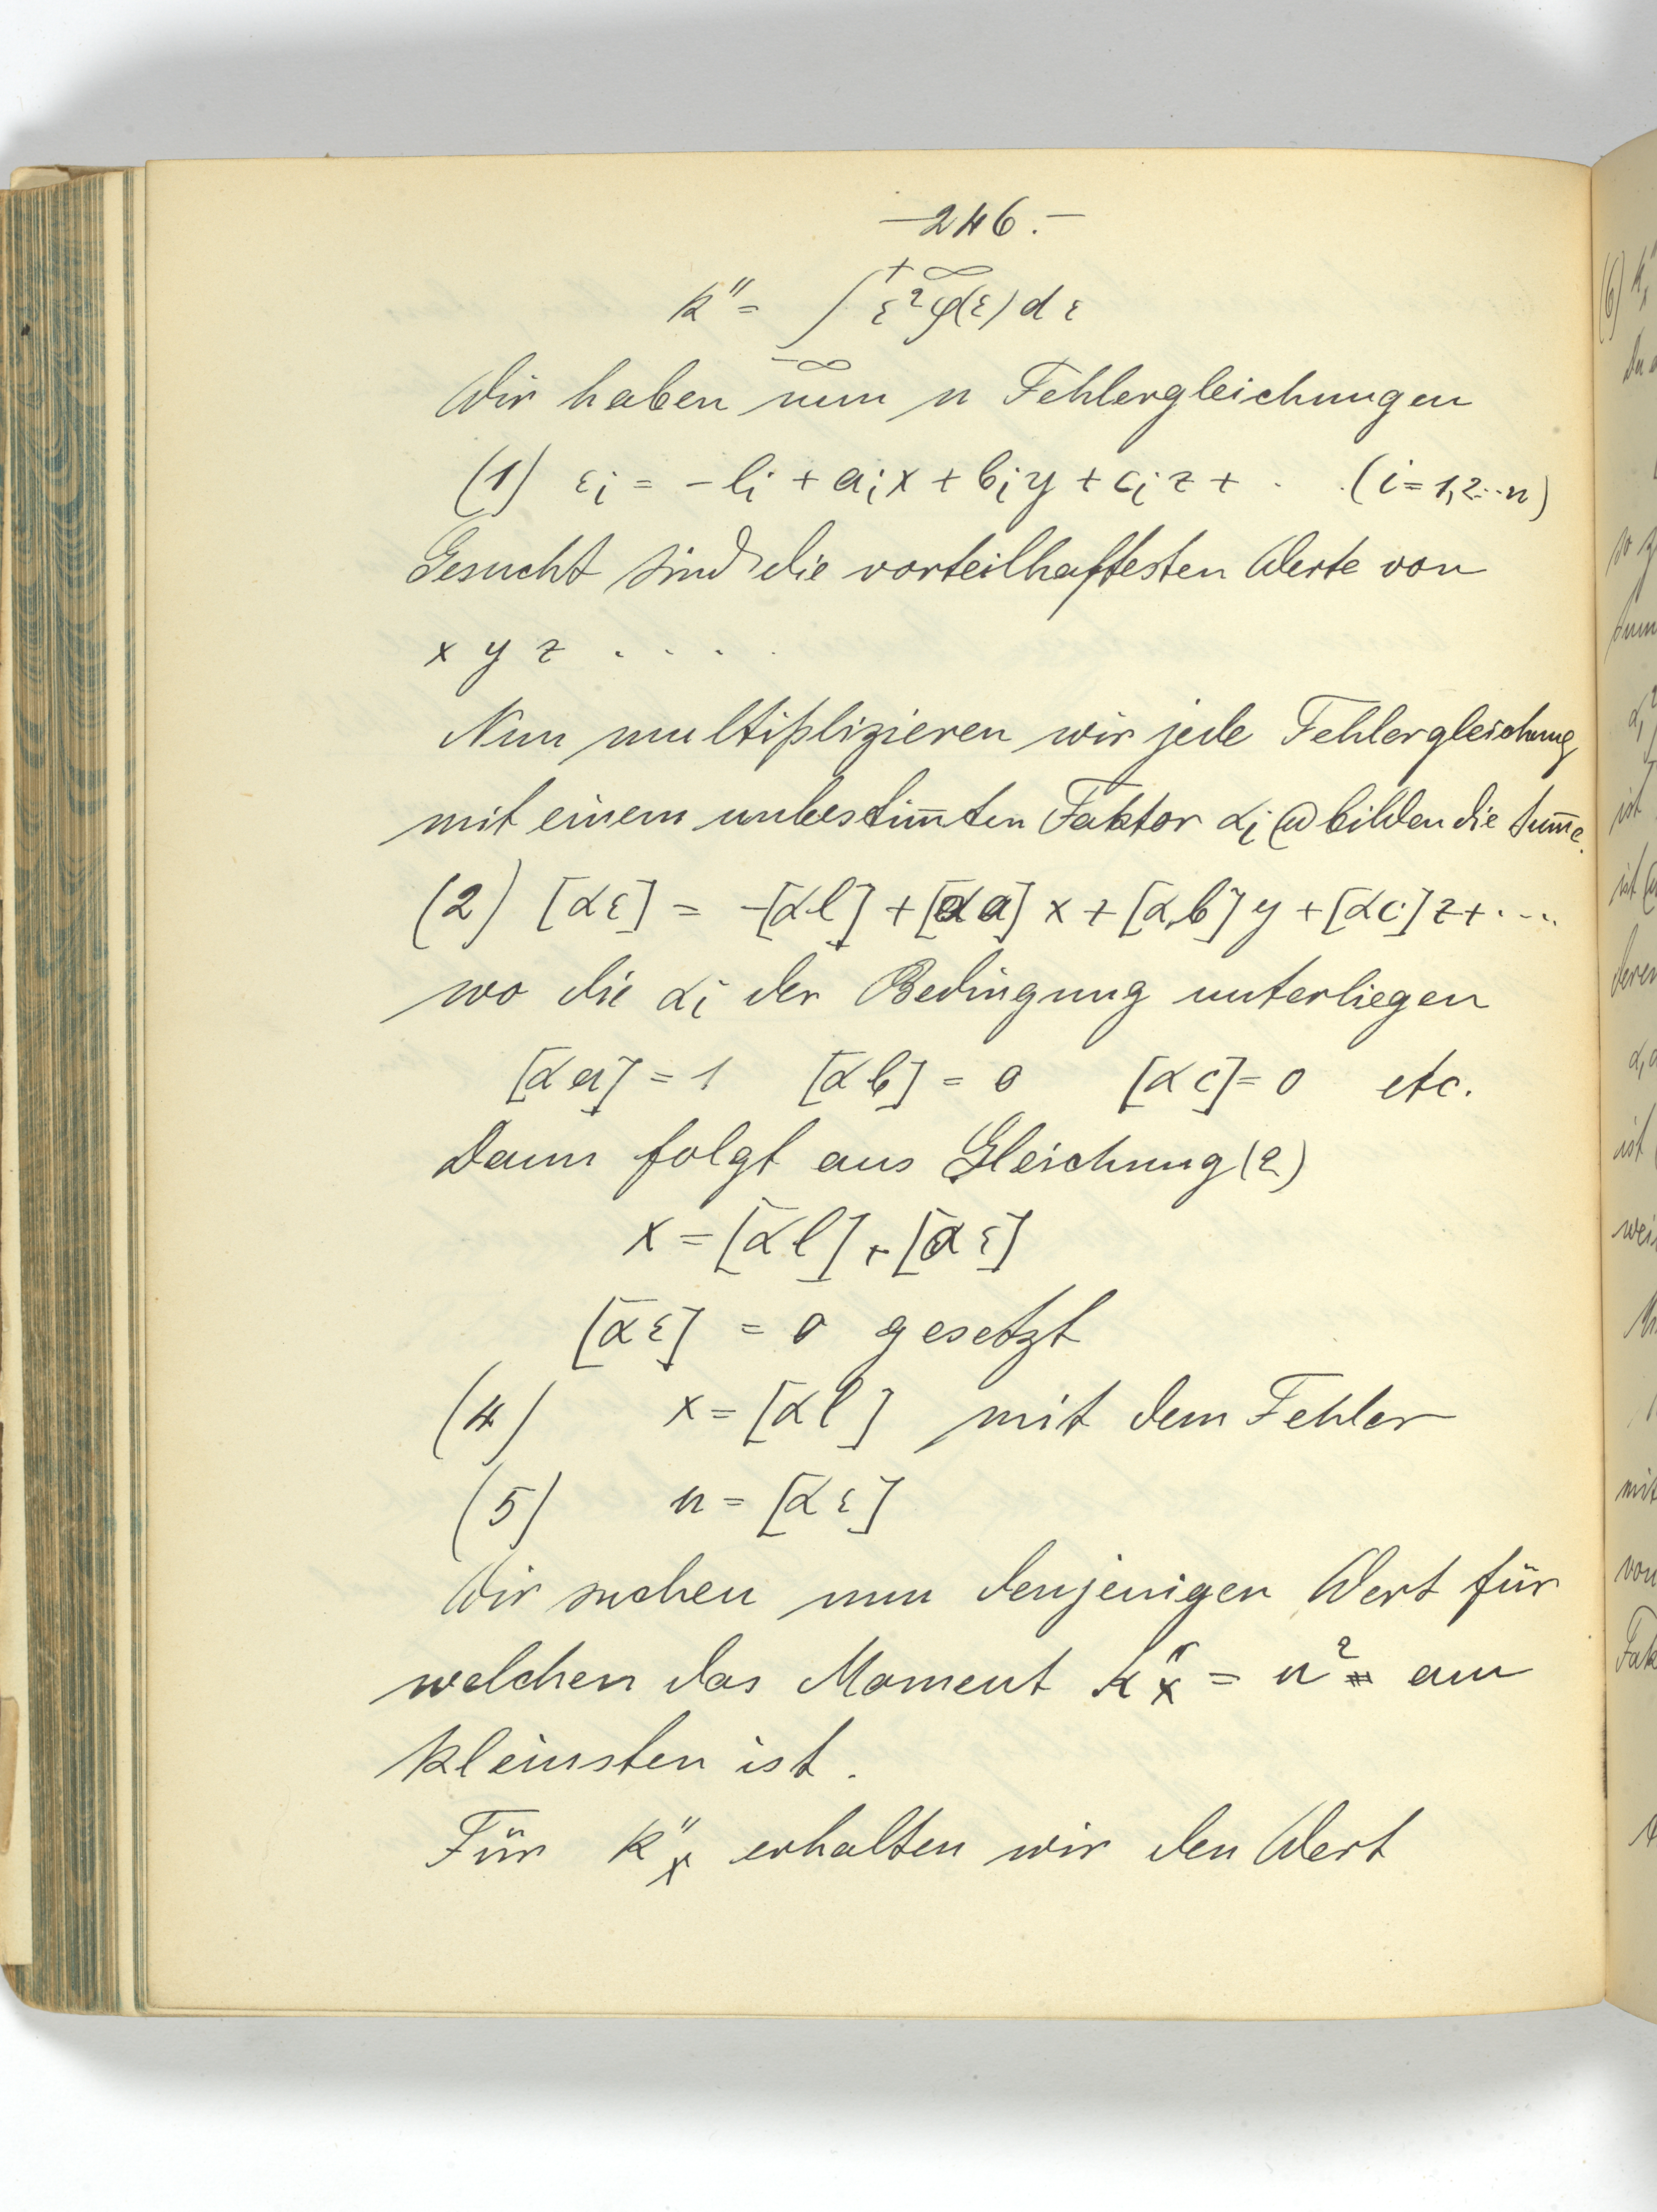 —246.—
k'' = ∫ ε² φ(ε) d ε
+∞
−∞
Wir haben nun n Fehlergleichungen
(1) εi = − li + aix + biy + ciz + . . (i = 1,2...n)
Gesucht sind die vorteilhaftesten Werte von
x y z . . . .
Nun multiplizieren wir jede Fehlergleichung
mit einem unbestim̄ten Faktor αi @ bilden die Sum̄e.
(2) [αε] = −[αl] + [αa] x + [αb] y + [αc] z + . ...
wo die αi der Bedingung unterliegen
[αa] = 1 [αb] = 0 [αc] = 0 etc.
Dann folgt aus Gleichung (2)
x = [αl] + [αε]
[αε] = 0 gesetzt
(4) x = [αl] mit dem Fehler
(5) u = [αε]
Wir suchen nun denjenigen Wert für
welchen das Moment k''x = u² am
kleinsten ist.
Für k''x erhalten wir den Wert